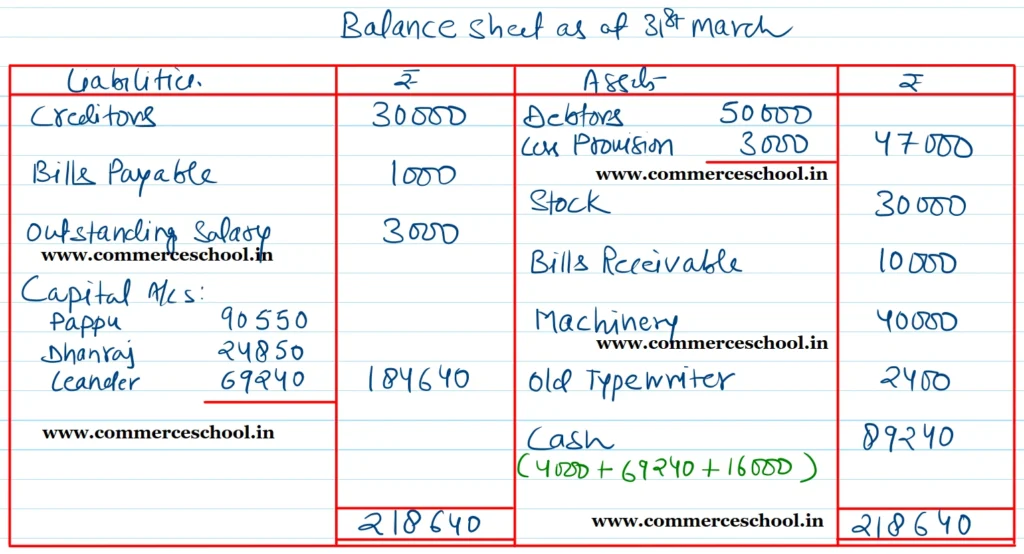 Balance sheet as at 31st March
Liabilities. ₹ Assets ₹
Creditors 30000 Debtors 50000
Less Provision 3000 47000
Bills Payable 1000 www.commerceschool.in
Stock 30000
Outstanding Salary 3000
www.commerceschool.in
Bills Receivable 10000
Capital A/cs:
Pappu 90550 Machinery 40000
Dhanraj 24850 www.commerceschool.in
Leander 69240 184640 Old Typewriter 2400
www.commerceschool.in Cash 89240
(4000 + 69240 + 16000)
218640 www.commerceschool.in 218640